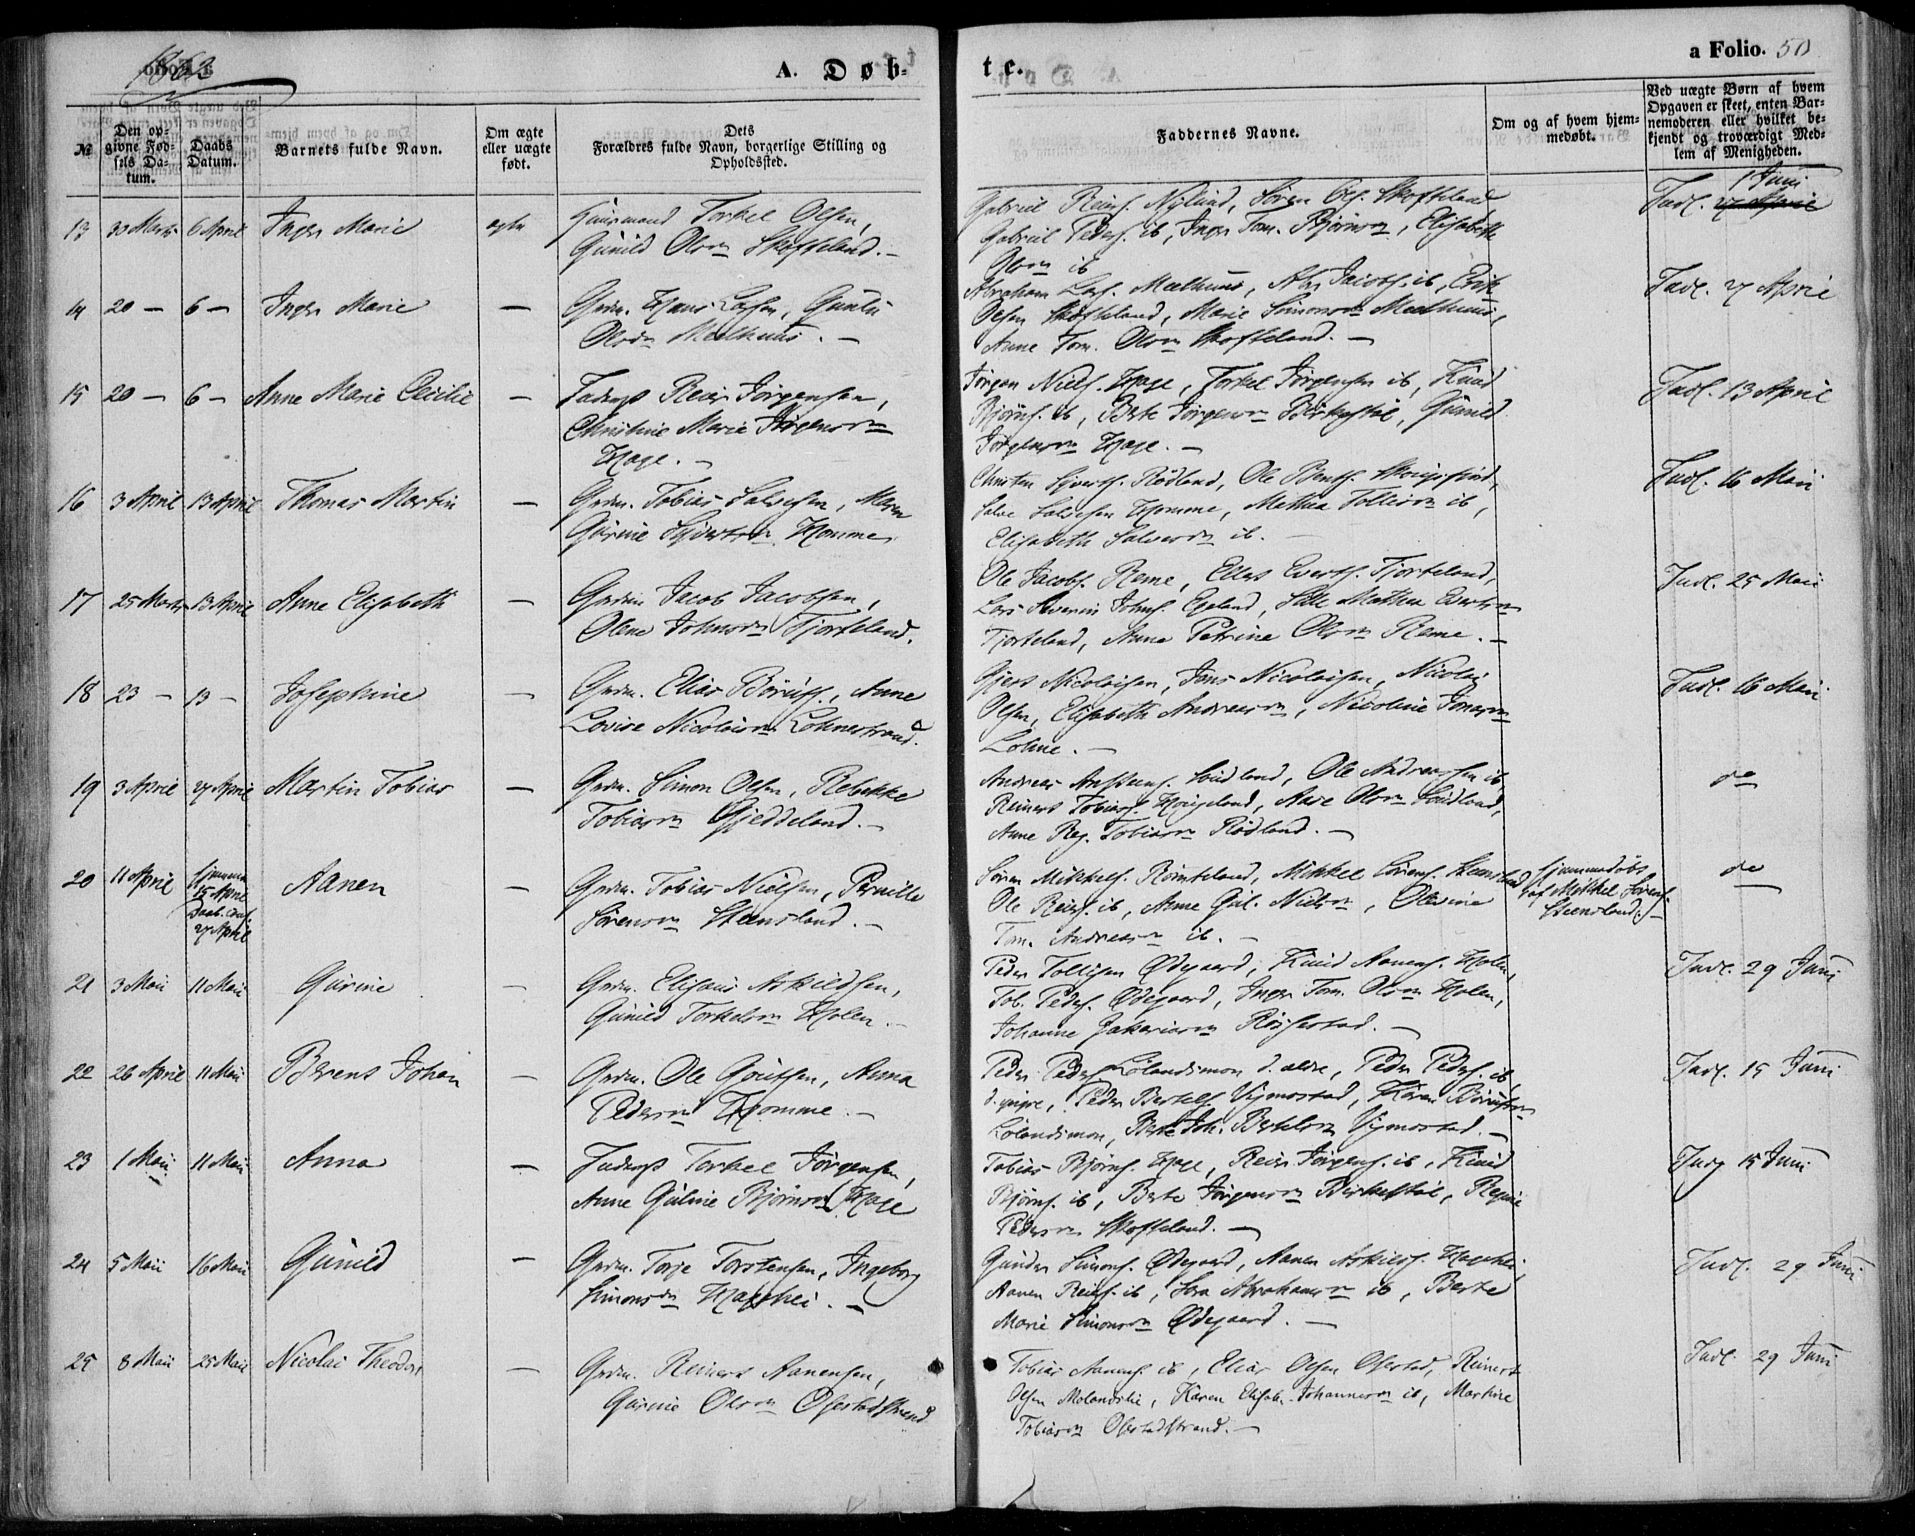 1863
A. Døb-
te.
a Folio. 50
№
Den opgivne Fødsels Datum.
Daabs Datum.
Barnets fulde Navn.
Om ægte eller uægte født.
Dets Forældres fulde Navn, borgerlige Stilling og Opholdssted.
Faddernes Navne.
Om og af hvem hjemmedøbt.
Ved uægte Børn af hvem Opgaven er skeet, enten Barnemoderen eller hvilket bekjendt og troværdigt Medlem af Menigheden.
13 30 Marts 6 April Inger Marie ægte Torkel Olsen,
Gunild Olsdr Skofteland. –
Gabriel Reiersf. Nylund, Søren Ols. Skofteland
Gabriel Peders. ib, Inger Tom. Bjørnsdr, Elisabeth
Olsdr ib
Indl. 27 April 1 Juni
14 20 – 6 – Inger Marie – Grdm. Hans Larsen, Guntu
Olsdr Mælhuus. –
Abraham Lars. Mælhuus, Abr. Jacobs. ib, Erik
Olsen Skofteland, Marie Simonsdr Mælhuus,
Anne Tom. Olsdr Skofteland. –
Indl. 27 April
15 20 – 6 – Anne Marie Cecilie – Inderst Reier Jørgensen,
Christine Marie Jørgensdr
Hage. –
Jørgen Niels. Hage, Torkel Jørgensen ib, Knud
Bjørns. ib, Berte Jørgensdr Birkestøl, Gunild
Jørgensdr Hage. –
Indl. 13 April
16 3 April 13 April Thomas Martin – Grdm. Tobias Salvesen, Maren
Gurine Sjvertsdr Homme
Christen Sjverts. Rødland, Ole Bents.
Salve Salvesen Homme, Mathea Tollisdr ib,
Elisabeth Salvesdr ib. –
Indl. 16 Mai
17 25 Marts 13 April Anne Elisabeth – Grdm Jacob Jacobsen,
Olene Johnsdr Fjorteland.
Ole Jacobs. Reme, Elias Everts. Fjorteland,
Lars Severin Johns. Egeland, Sille Mathea Evertsdr
Fjorteland, Anna Petrine Olsdr Reme. –
Indl. 25 Mai
18 23 – 13 – Josephine – Grdm. Elias Børufs., Anne
Lovise Nicolaisdr Lohnestrand.
Gjert Nicolaisen, Jens Nicolaisen, Nicolai
Olsen, Elisabeth Andreasdr, Nicoline Jonasdr
Lohne. –
Indl. 16 Mai
19 3 April 27 April Martin Tobias – Grdm. Simon Olsen, Rebekke
Tobiasdr Gjeddeland. –
Andreas Lindland, Ole Andreassen ib,
Reinert Tobias. Høigeland, Aase Olsdr Lindland,
Anne Reg. Tobiasdr Rødland. –
do
20 11 April hjemme 15 April
Daab. conf.
27 April
Aanen – Grdm. Tobias Nielsen, Pernille
Sørensdr Steensland. –
Søren Mikkels. Røinteland, Mikkel Sørens. Steensland
Ole Reiers. ib, Anne Gul. Nielsdr, Olevine
Tom. Andreasdr ib. –
hjemmedøbt
af Mikkel Sørens.
Steensland. –
do
21 3 Mai 11 Mai Gurine – Grdm. Elisæus Askildsen,
Gunild Torkelsdr Holen. –
Peder Tollifsen Ødegaard, Knud Aanens. Holen,
Tob. Peders. Ødegaard, Inger Tom. Olsdr Holen,
Johanne Zakariasdr Røiserstad. –
Indl. 29 Juni
22 26 April 11 Mai Berent Johan – Grdm. Ole Gautsen, Anna
Pedersdr Homme. –
Peder Peders. Lølandsmon d. ældre, Peder Peders. ib
d. yngre, Peder Bertels. Vigmostad, Karen Børufsdr
Lølandsmon, Berte Joh. Bertelsdr Vigmostad. –
Indl. 15 Juni
23 1 Mai 11 Mai Anna – Inderst Torkel Jørgensen,
Anne Guline Bjørnsdr Hage
Tobias Bjørns. Hage, Reier Jørgens. ib, Knud
Bjørns. ib, Berte Jørgensdr Birkestøl, Regine
Pedersdr Skofteland. –
Indl 15 Juni
24 5 Mai 16 Mai Gunild – Grdm. Torje Torstensen, Ingeborg
Simonsdr Høgshei. –
Gunder Simons. Ødegaard, Aanen Askilds.
Aanen Reiers. ib, Sara Abrahamsdr ib, Berte
Marie Simonsdr Ødegaard. –
Indl. 29 Juni
25 8 Mai 25 Mai Nicolai Theodor – Grdm. Reinert Aanensen,
Gurine Olsdr Ofstadstrand
Tobias Aanens. ib, Elias Olsen Ofstad, Reinert
Olsen, Karen Elisab. Johannesdr ib, Martine
Tobiasdr Ofstadstrand. –
Indl. 29 Juni